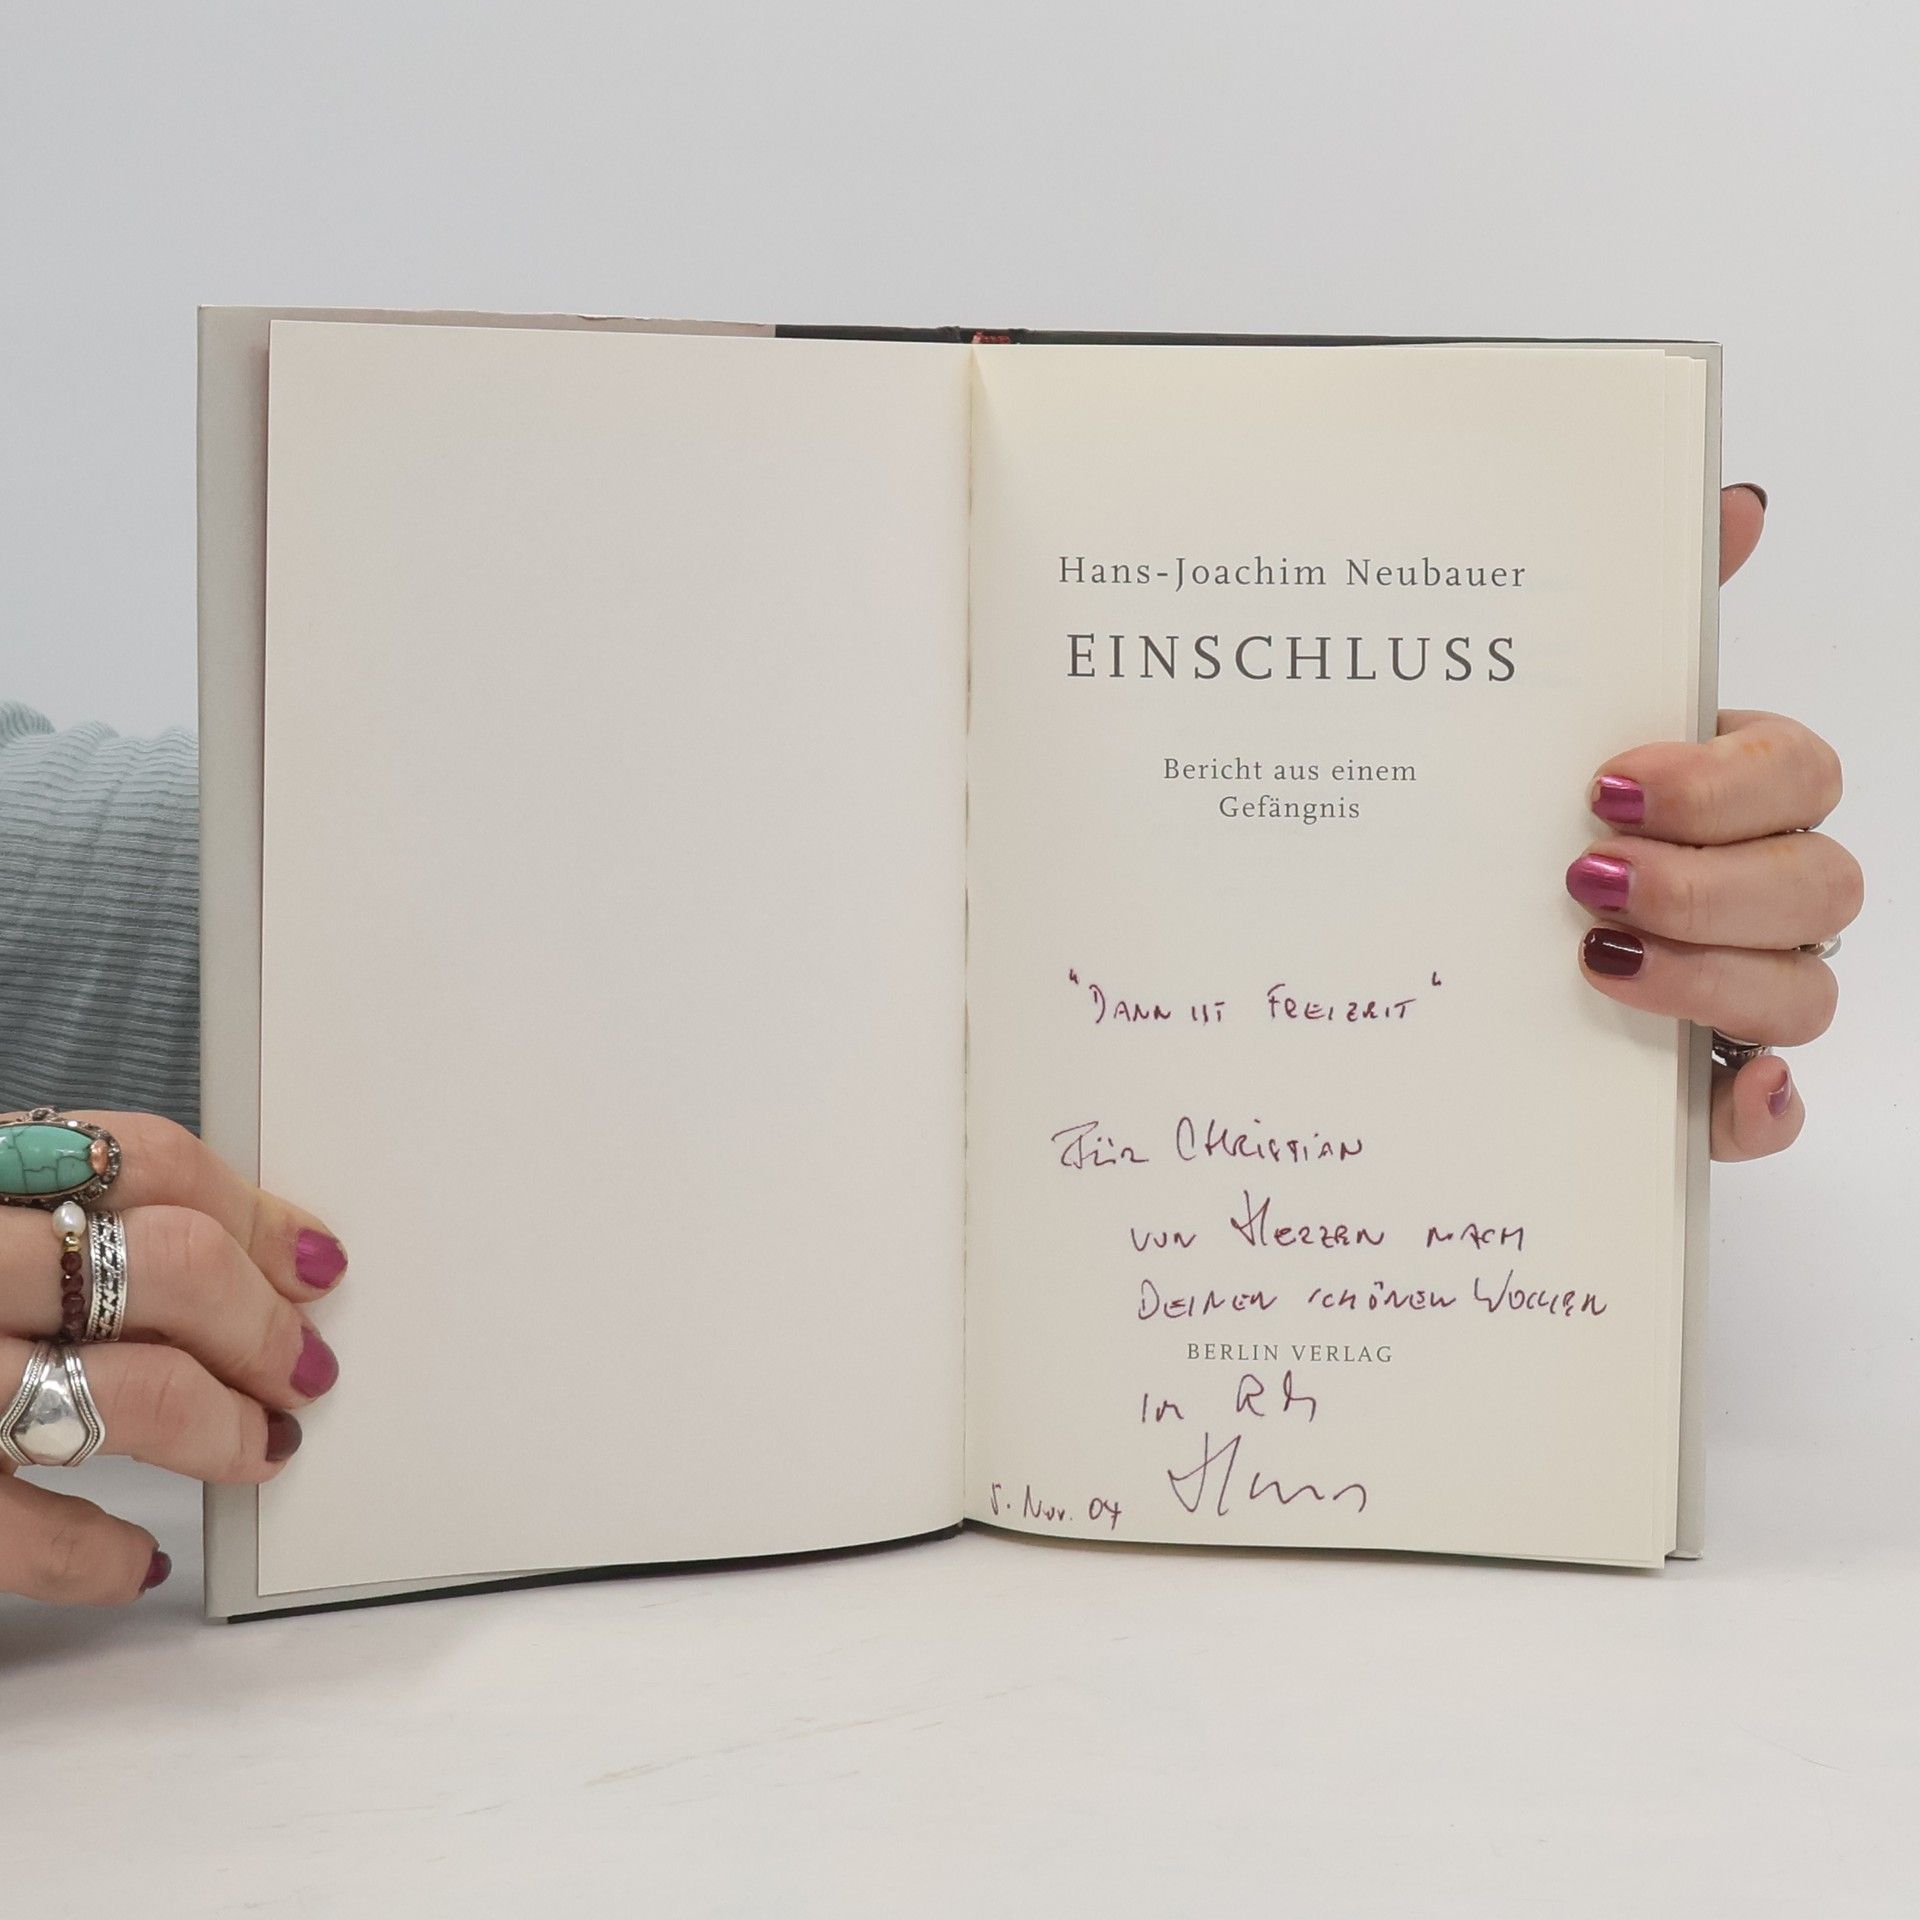 Hans-Joachim Neubauer
EINSCHLUSS
Bericht aus einem
Gefängnis
"DANN IST FREIZEIT"
FÜR CHRISTIAN
VON HERZEN NACH
DEINEN SCHÖNEN WOCHEN
BERLIN VERLAG
IM
5. Nov. 07